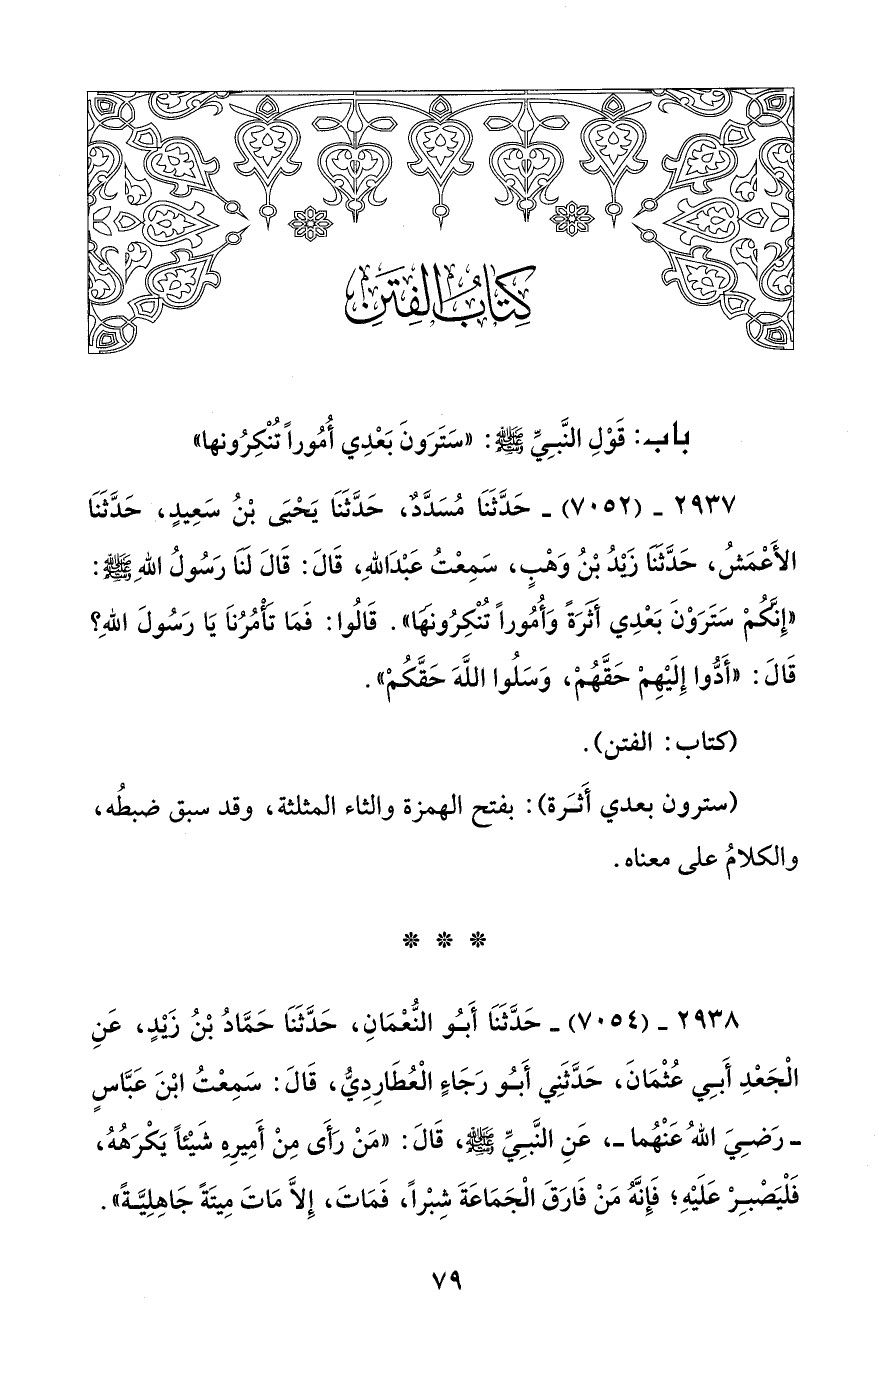 كِتَابُ الْفِتَنِ
باب: قَوْلِ النَّبِيِّ ﷺ: «سَتَرَونَ بَعْدِي أُمُوراً تُنْكِرُونها»
٢٩٣٧ ـ (٧٠٥٢) ـ حَدَّثَنَا مُسَدَّدٌ، حَدَّثَنَا يَحْيَى بْنُ سَعِيدٍ، حَدَّثَنَا
الأَعْمَشُ، حَدَّثَنَا زَيْدُ بْنُ وَهْبٍ، سَمِعْتُ عَبْدَاللهِ، قَالَ: قَالَ لَنَا رَسُولُ اللهِ ﷺ:
«إِنَّكُمْ سَتَرَوْنَ بَعْدِي أَثَرَةً وَأُمُوراً تُنْكِرُونَهَا». قَالُوا: فَمَا تَأْمُرُنَا يَا رَسُولَ اللهِ؟
قَالَ: «أَدُّوا إِلَيْهِمْ حَقَّهُمْ، وَسَلُوا اللَّهَ حَقَّكُمْ».
(كتاب: الفتن).
(سترون بعدي أَثَرة): بفتح الهمزة والثاء المثلثة، وقد سبق ضبطُه،
والكلامُ على معناه.
* * *
٢٩٣٨ ـ (٧٠٥٤) ـ حَدَّثَنَا أَبُو النُّعْمَانِ، حَدَّثَنَا حَمَّادُ بْنُ زَيْدٍ، عَنِ
الْجَعْدِ أَبِي عُثْمَانَ، حَدَّثَنِي أَبُو رَجَاءٍ الْعُطَارِدِيُّ، قَالَ: سَمِعْتُ ابْنَ عَبَّاسٍ
ـ رَضيَ اللهُ عَنْهُما ـ، عَنِ النَّبِيِّ ﷺ، قَالَ: «مَنْ رَأَى مِنْ أَمِيرِهِ شَيْئاً يَكْرَهُهُ،
فَلْيَصْبِرْ عَلَيْهِ؛ فَإِنَّهُ مَنْ فَارَقَ الْجَمَاعَةَ شِبْراً، فَمَاتَ، إِلاَّ مَاتَ مِيتَةً جَاهِلِيَّةً».
٧٩